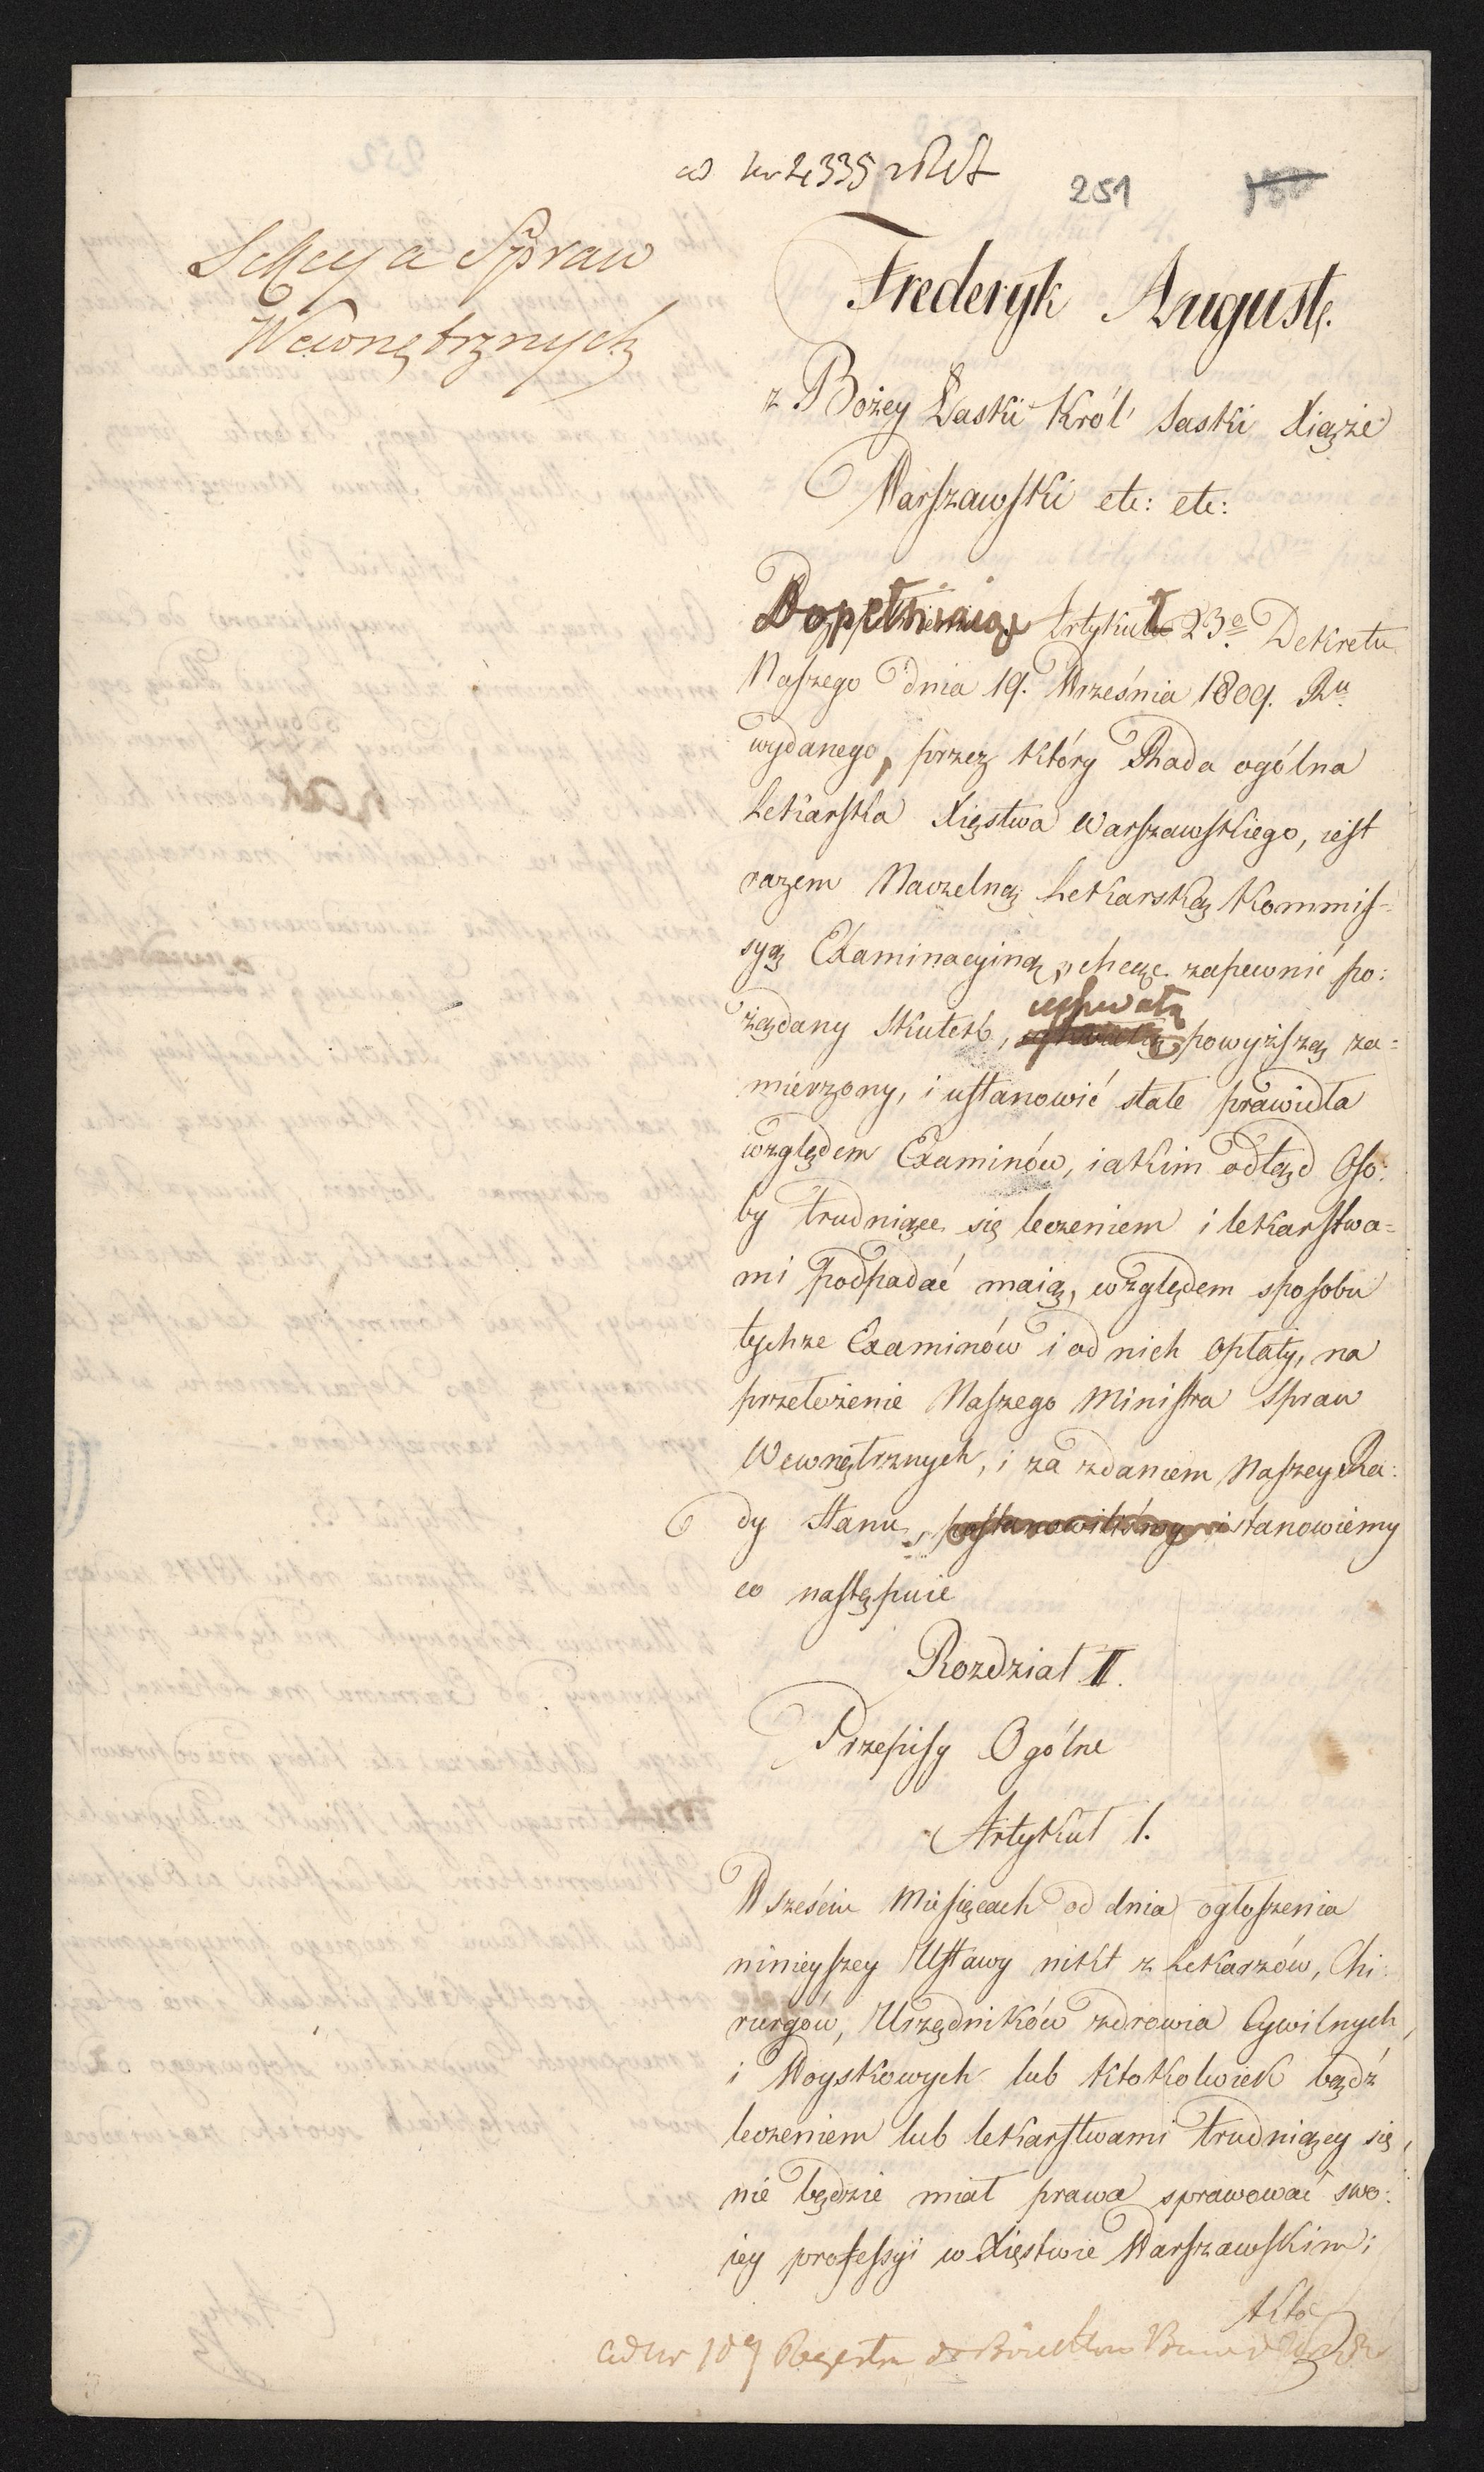 ad Nr 2,335
251
Sekcya Spraw
Wewnętrznych
Frederyk August.
z Bożey Łaski Król Saski Xiąże
Warszawski etc: etc:
Dopełniaiąc Artykuł 23e Dekretu
Naszego dnia 19. Września 1809. Ru
wydanego, przez który Rada ogólna
Lekarska Xięstwa Warszawskiego, iest
razem Naczelną Lekarską Kommis-
syą Examinacyiną, chcąc zapewnić po:
żądany skutek, uchwałą powyższą za-
mierzony, i ustanowić stałe prawidła
względem Examinów, iakim odtąd Oso:
by trudniące się leczeniem i lekarstwa-
mi podpadać maią, względem sposobu
tychże Examinów i od nich opłaty, na
przełożenie Naszego Ministra Spraw
Wewnętrznych, i za zdaniem Naszey Ra:
dy Stanu, postanowiliśmy i stanowiemy
co następuie
Rozdział II.
Przepisy Ogólne
Artykuł 1.
W sześciu Miesięcach od dnia ogłoszenia
ninieyszey Ustawy nikt z Lekarzów, Chi:
rurgów, Urzędników zdrowia Cywilnych,
i Woyskowych lub ktokolwiek bądź
leczeniem lub lekarstwami trudniący się,
nie będzie miał prawa sprawować swo:
iey professyi w Xięstwie Warszawskim;
Kto
ad Nr 109